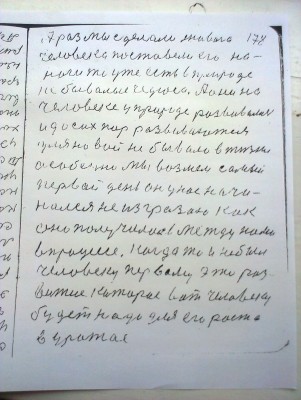 А раз мы сделали живого 178
человека поставели его на
ноги то уже есть в природе
небывалые чудеса. Ани на
человеке и природе развивалися
и до сих пор развиваются
небывало в жизни
особенно мы возмем самый
первай день он у нас начи-
нался не из разаю как
оно получилось между нами
в процесе. Когда то и небыл
человеку первому это раз-
витие которае вот человеку
будет надо для его роста
в урожае